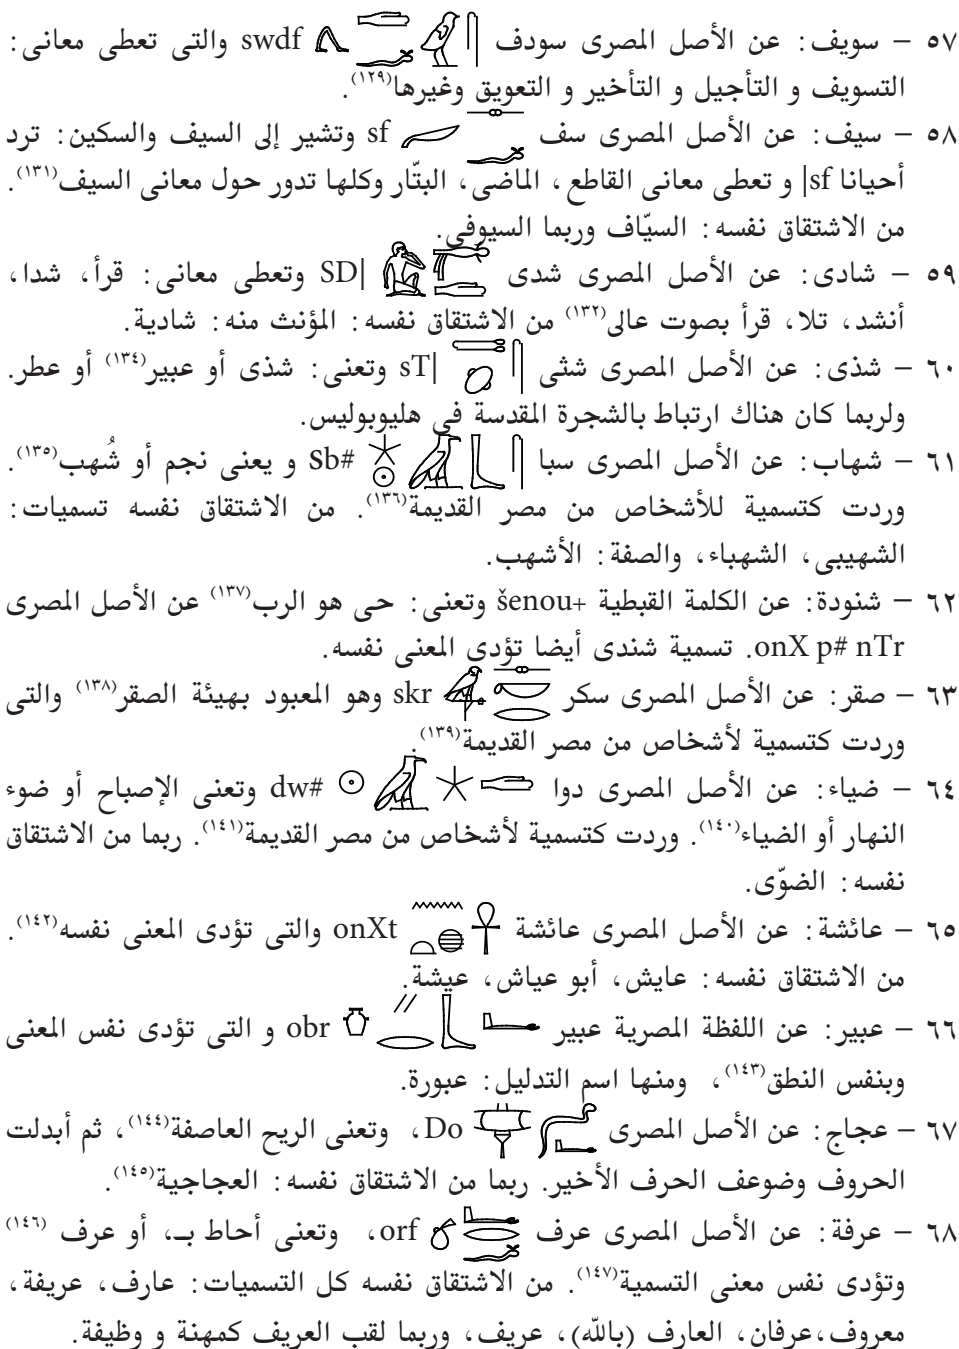 ٥٧ – سويف: عن الأصل المصرى سودف swdf والتى تعطى معانى:
التسويف و التأجيل و التأخير و التعويق وغيرها(١٢٩).
٥٨ – سيف: عن الأصل المصرى سف sf وتشير إلى السيف والسكين: ترد
أحيانا sf| و تعطى معانى القاطع، الماضى، البتّار وكلها تدور حول معانى السيف(١٣١).
من الاشتقاق نفسه: السيّاف وربما السيوفى.
٥٩ – شادى: عن الأصل المصرى شدى SD| وتعطى معانى: قرأ، شدا،
أنشد، تلا، قرأ بصوت عالى(١٣٢) من الاشتقاق نفسه: المؤنث منه: شادية.
٦٠ – شذى: عن الأصل المصرى شثى sT| وتعنى: شذى أو عبير(١٣٤) أو عطر.
ولربما كان هناك ارتباط بالشجرة المقدسة فى هليوبوليس.
٦١ – شهاب: عن الأصل المصرى سبا Sb# و يعنى نجم أو شُهب(١٣٥).
وردت كتسمية للأشخاص من مصر القديمة(١٣٦). من الاشتقاق نفسه تسميات:
الشهيبى، الشهباء، والصفة: الأشهب.
٦٢ – شنودة: عن الكلمة القبطية šenou+ وتعنى: حى هو الرب(١٣٧) عن الأصل المصرى
onX p# nTr. تسمية شندى أيضا تؤدى المعنى نفسه.
٦٣ – صقر: عن الأصل المصرى سكر skr وهو المعبود بهيئة الصقر(١٣٨) والتى
وردت كتسمية لأشخاص من مصر القديمة(١٣٩).
٦٤ – ضياء: عن الأصل المصرى دوا dw# وتعنى الإصباح أو ضوء
النهار أو الضياء(١٤٠). وردت كتسمية لأشخاص من مصر القديمة(١٤١). ربما من الاشتقاق
نفسه: الضوّى.
٦٥ – عائشة: عن الأصل المصرى عائشة onXt والتى تؤدى المعنى نفسه(١٤٢).
من الاشتقاق نفسه: عايش، أبو عياش، عيشة.
٦٦ – عبير: عن اللفظة المصرية عبير obr و التى تؤدى نفس المعنى
وبنفس النطق(١٤٣)، ومنها اسم التدليل: عبورة.
٦٧ – عجاج: عن الأصل المصرى Do، وتعنى الريح العاصفة(١٤٤)، ثم أبدلت
الحروف وضوعف الحرف الأخير. ربما من الاشتقاق نفسه: العجاجية(١٤٥).
٦٨ – عرفة: عن الأصل المصرى عرف orf، وتعنى أحاط بـ، أو عرف (١٤٦)
وتؤدى نفس معنى التسمية(١٤٧). من الاشتقاق نفسه كل التسميات: عارف، عريفة،
معروف،عرفان، العارف (بالله)، عريف، وربما لقب العريف كمهنة و وظيفة.